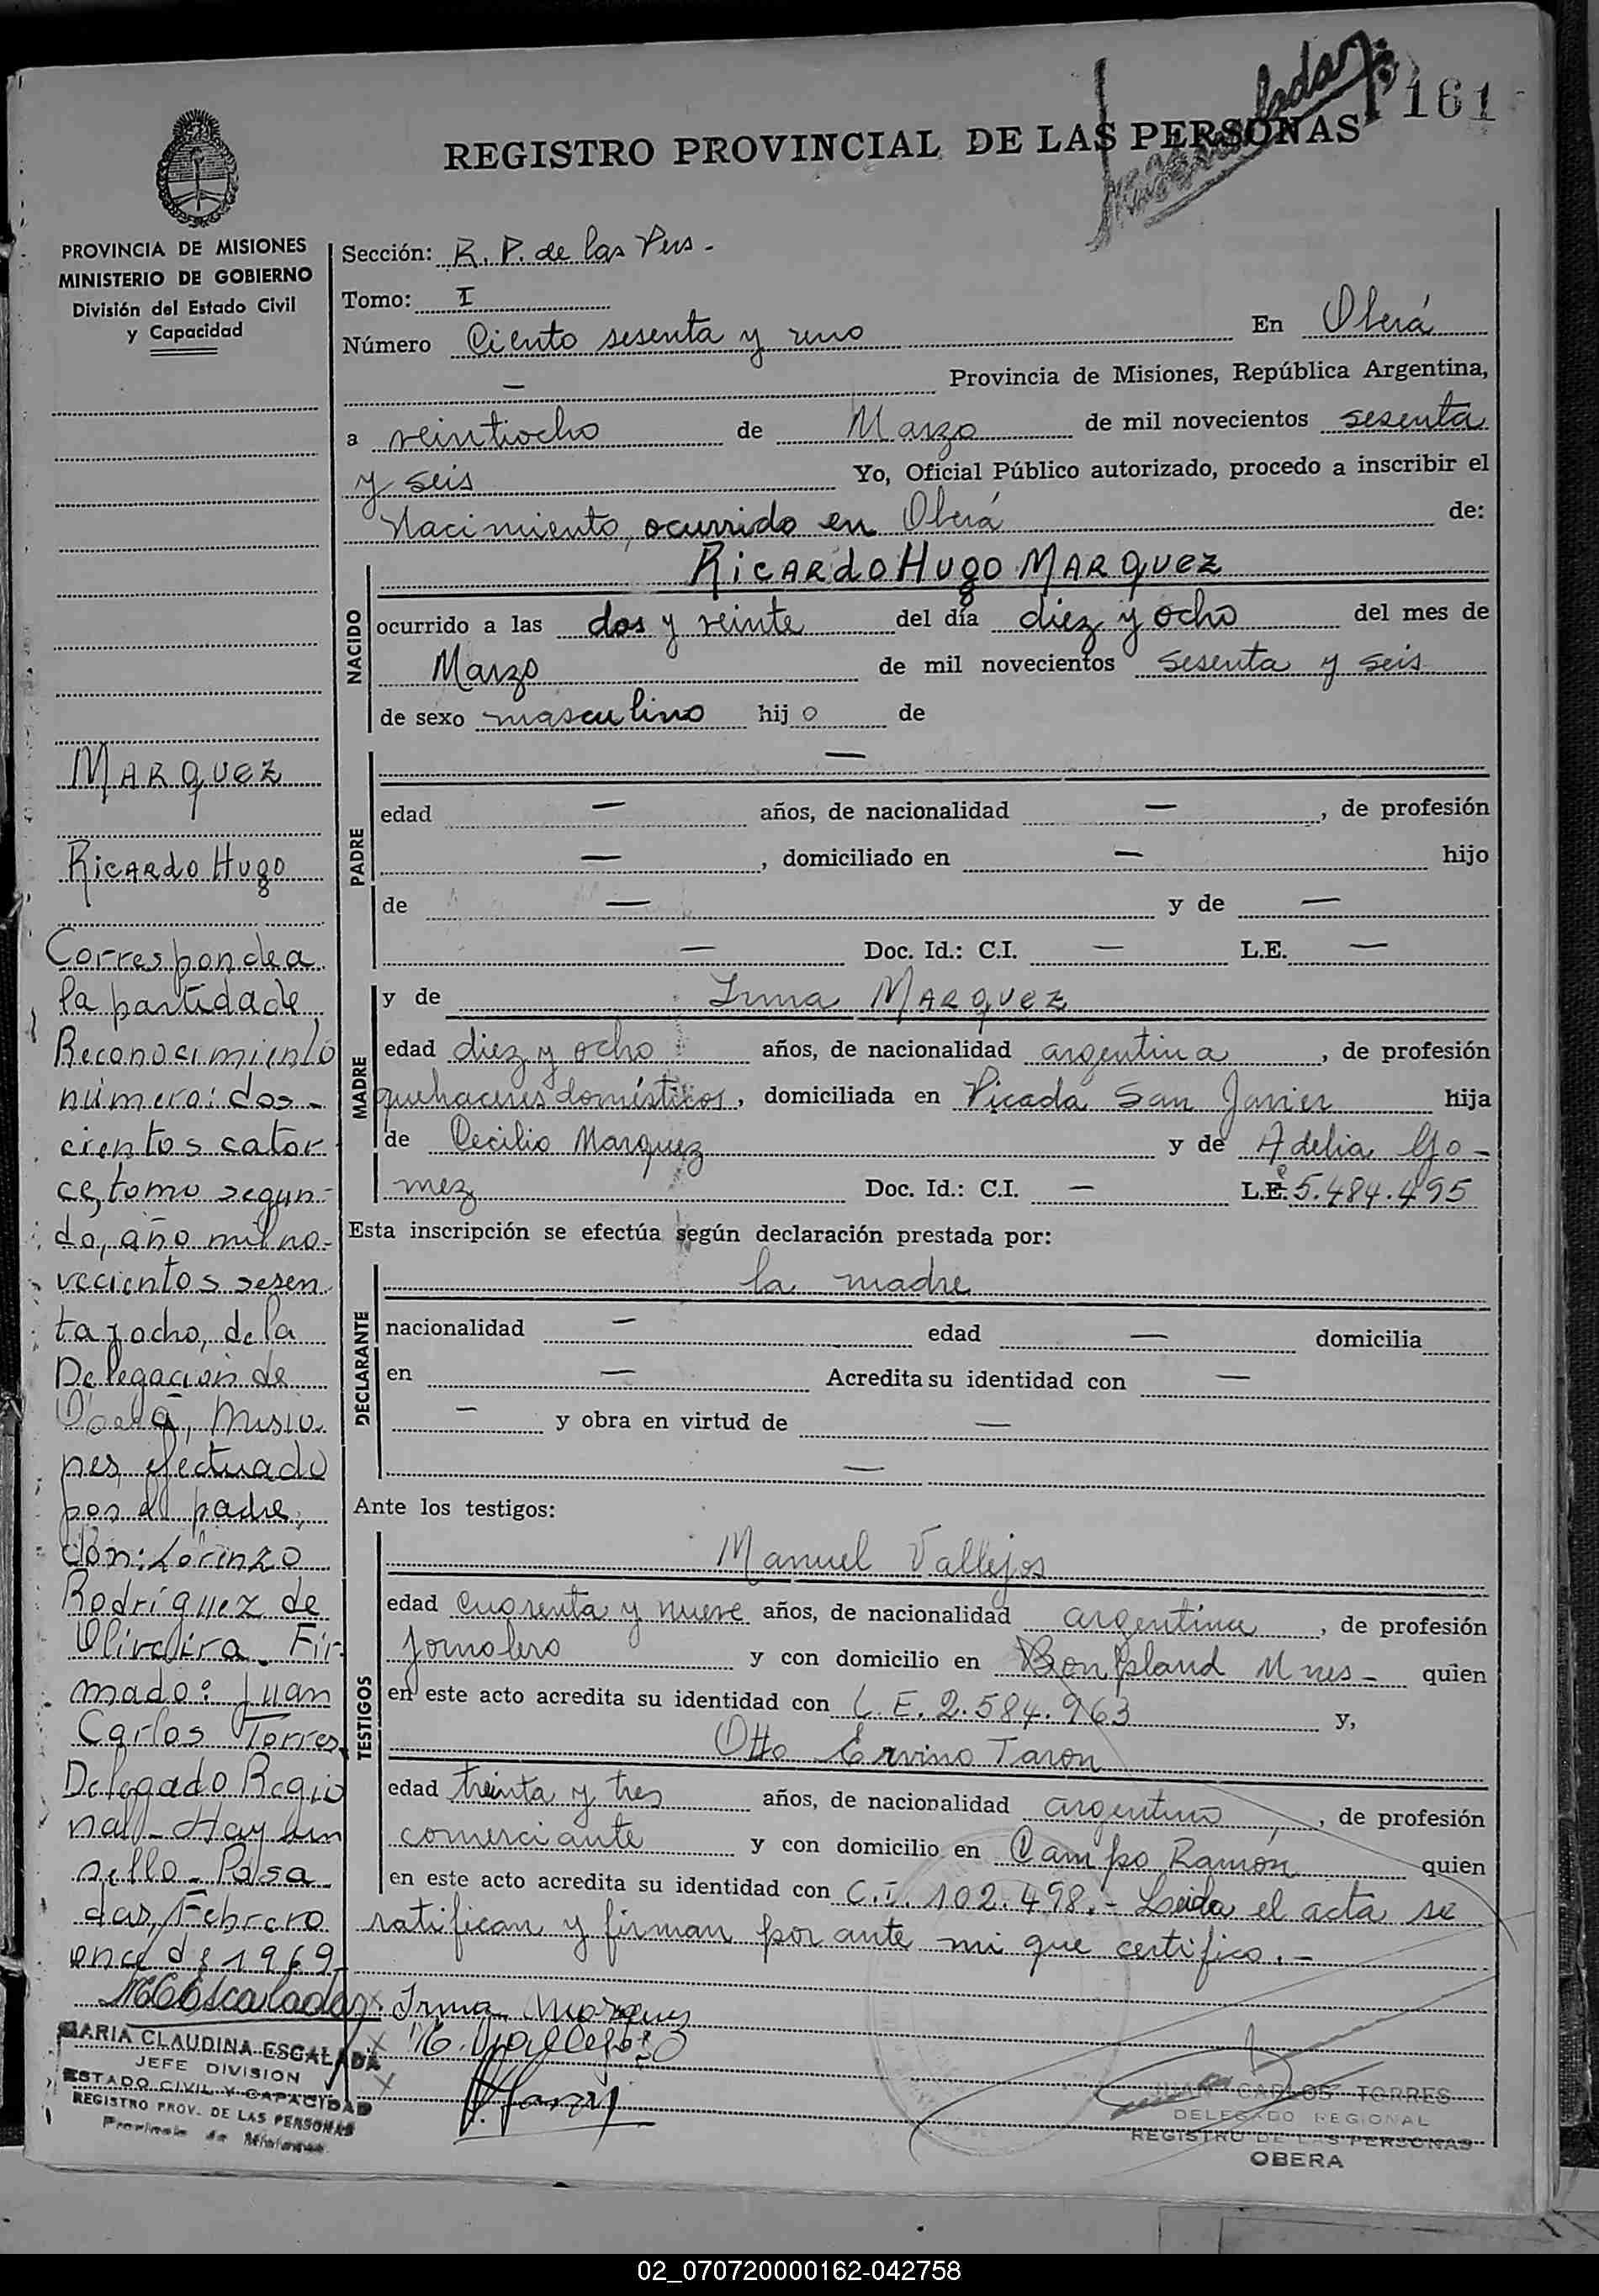 161
REGISTRO PROVINCIAL DE LAS PERSONAS
PROVINCIA DE MISIONES
MINISTERIO DE GOBIERNO
División del Estado Civil
y Capacidad
MARquez
Ricardo Hugo
Corresponde a
la partida de
Reconocimiento
número: dos-
cientos cator-
ce, tomo segun-
do, año mil no-
vecientos sesen
ta y ocho, de la
Delegación de
Oberá, Misio
nes, efectuado
por el padre,
don: Lorenzo
Rodríguez de
Oliveira. Fir-
mado: Juan
Carlos Torres
Delegado Regio
nal - Hay un
sello - Posa
das, Febrero
once de 1969
MARIA CLAUDINA ESCALADA
JEFE DIVISION
ESTADO CIVIL Y CAPACIDAD
REGISTRO PROV. DE LAS PERSONAS
Provincia de Misiones
Sección: R. P. de las Pers -
Tomo: I
Número Ciento sesenta y uno En Oberá
— Provincia de Misiones, República Argentina,
a veintiocho de Marzo de mil novecientos sesenta
y seis Yo, Oficial Público autorizado, procedo a inscribir el
Nacimiento, ocurrido en Oberá de:
NACIDO
Ricardo Hugo MARquez
ocurrido a las dos y veinte del día diez y ocho del mes de
Marzo de mil novecientos sesenta y seis
de sexo masculino hijo de
PADRE
—
edad — años, de nacionalidad — , de profesión
— , domiciliado en — hijo
de — y de —
— Doc. Id.: C.I. — L.E. —
MADRE
y de Irma MARquez
edad diez y ocho años, de nacionalidad argentina , de profesión
quehaceres domésticos, domiciliada en Picada San Javier hija
de Cecilio Marquez y de Adelia Go-
mez Doc. Id.: C.I. — L.E. 5.484.495
Esta inscripción se efectúa según declaración prestada por:
DECLARANTE
la madre
nacionalidad — edad — domicilia
en — Acredita su identidad con —
— y obra en virtud de —
—
Ante los testigos:
TESTIGOS
Manuel Vallejos
edad cuarenta y nueve años, de nacionalidad argentina , de profesión
jornalero y con domicilio en Bonpland Mnes - quien
en este acto acredita su identidad con L.E. 2.584.963 y,
Otto Ervino Taron
edad treinta y tres años, de nacionalidad argentino , de profesión
comerciante y con domicilio en Campo Ramón quien
en este acto acredita su identidad con C.I. 102.498.- Leida el acta se
ratifican y firman por ante mi que certifico.-
Irma Marquez
M. Vallejos
JUAN CARLOS TORRES
DELEGADO REGIONAL
REGISTRO DE LAS PERSONAS
OBERA
02_070720000162-042758